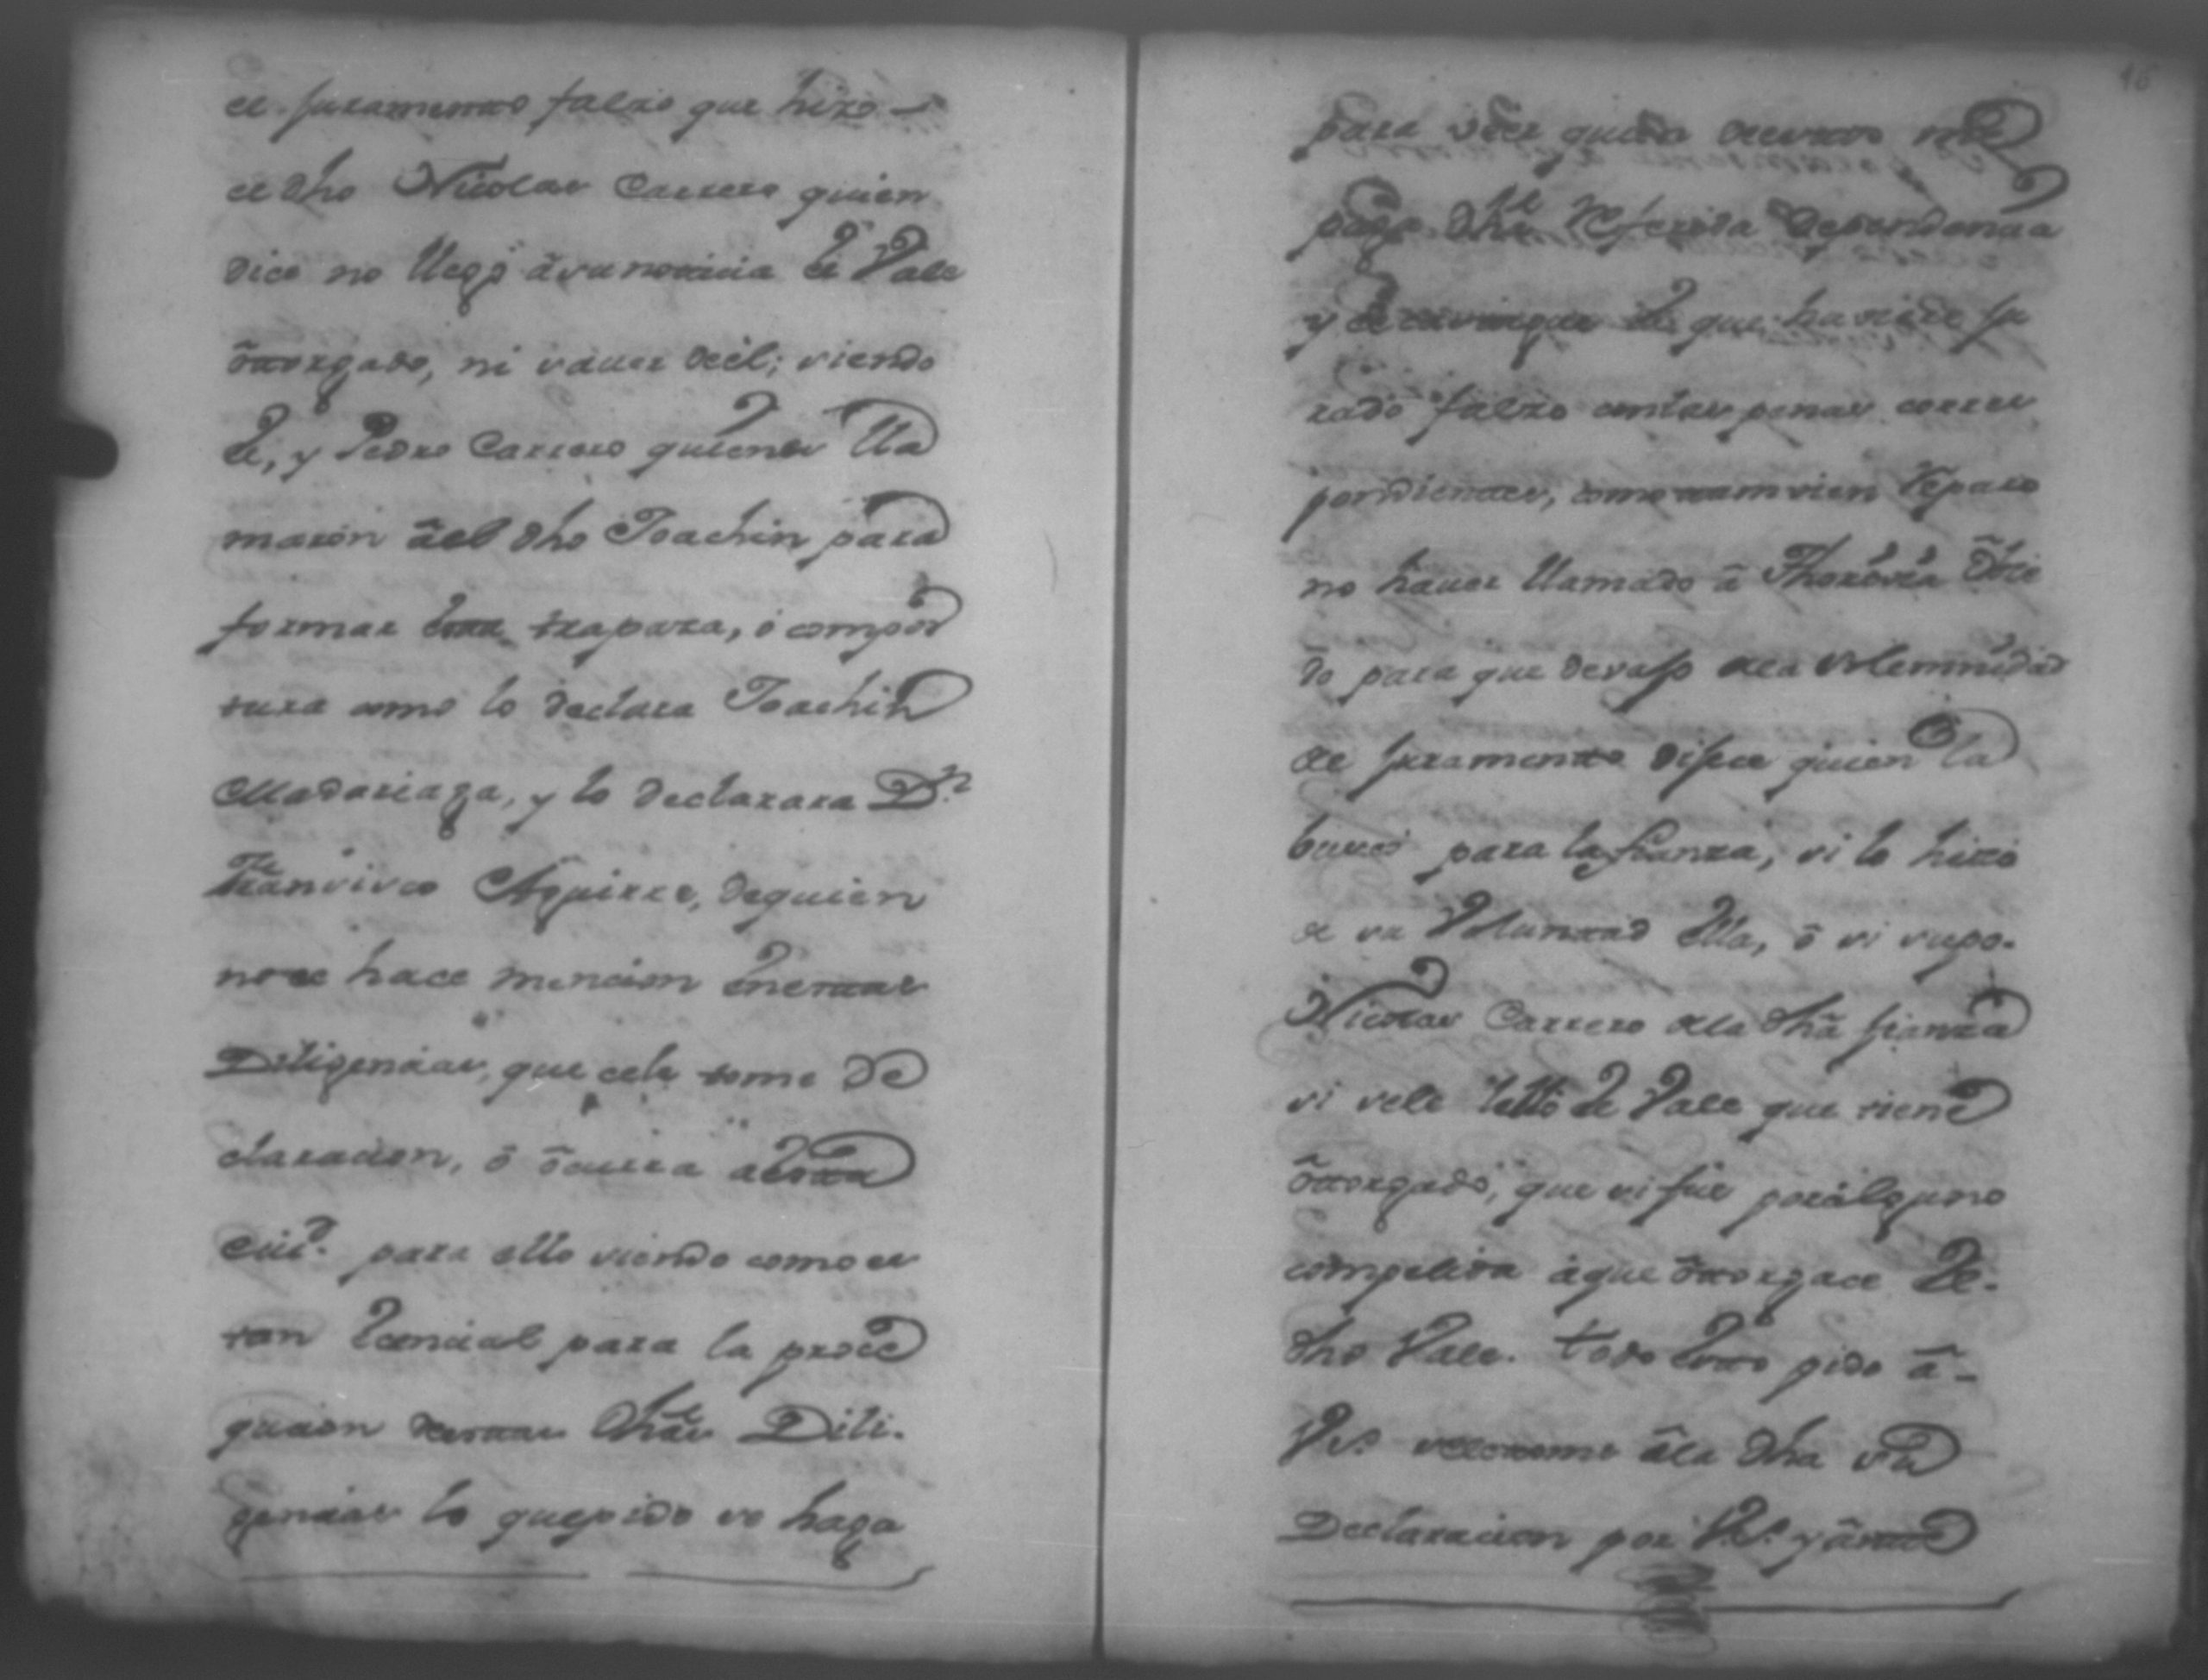 el Juramento falzo que hizo
el dho Nicolas Carrero quien
dice no llegó â su noticia el Vale
ôtorgado, ni saver deêl; siendo
el, y Pedro Carrero quienes lla
maron âel dho Joachin para
formar esta trapaza, ô compos
tura como lo declara Joachin
Madariaga, y lo declarara Dn
Franzisco Aguirre, dequien
nose hace mencion enestas
Diligencias, que sele tome de
claracion, ô ôcurra aesta
Ciud. para ello siendo como es
tan Ecencial para la proce
gucion deestas dhas Dili.
gencias lo quepido se haga
18
para ver quien deestos me
paga dha Referida Dependencia
y el que ha sido Ju
rado falzo conlas penas corres
pondientes, como tamvien reparo
no haver llamado â Thoresa
do para que devajo dela solemnidad
de Juramento dijese quien la
busco para la fianza, si lo hizo
de su Voluntad Ella, ô si supo
Nicolas Carrero dela dha fianza
si sele leyo el Vale que tiene
ôtorgado, que si fue porâlguno
compelida âque ôtorgace el
dho Vale. todo Esto pido â
Vs. âla dha su
Declaracion por Vs. y ânte